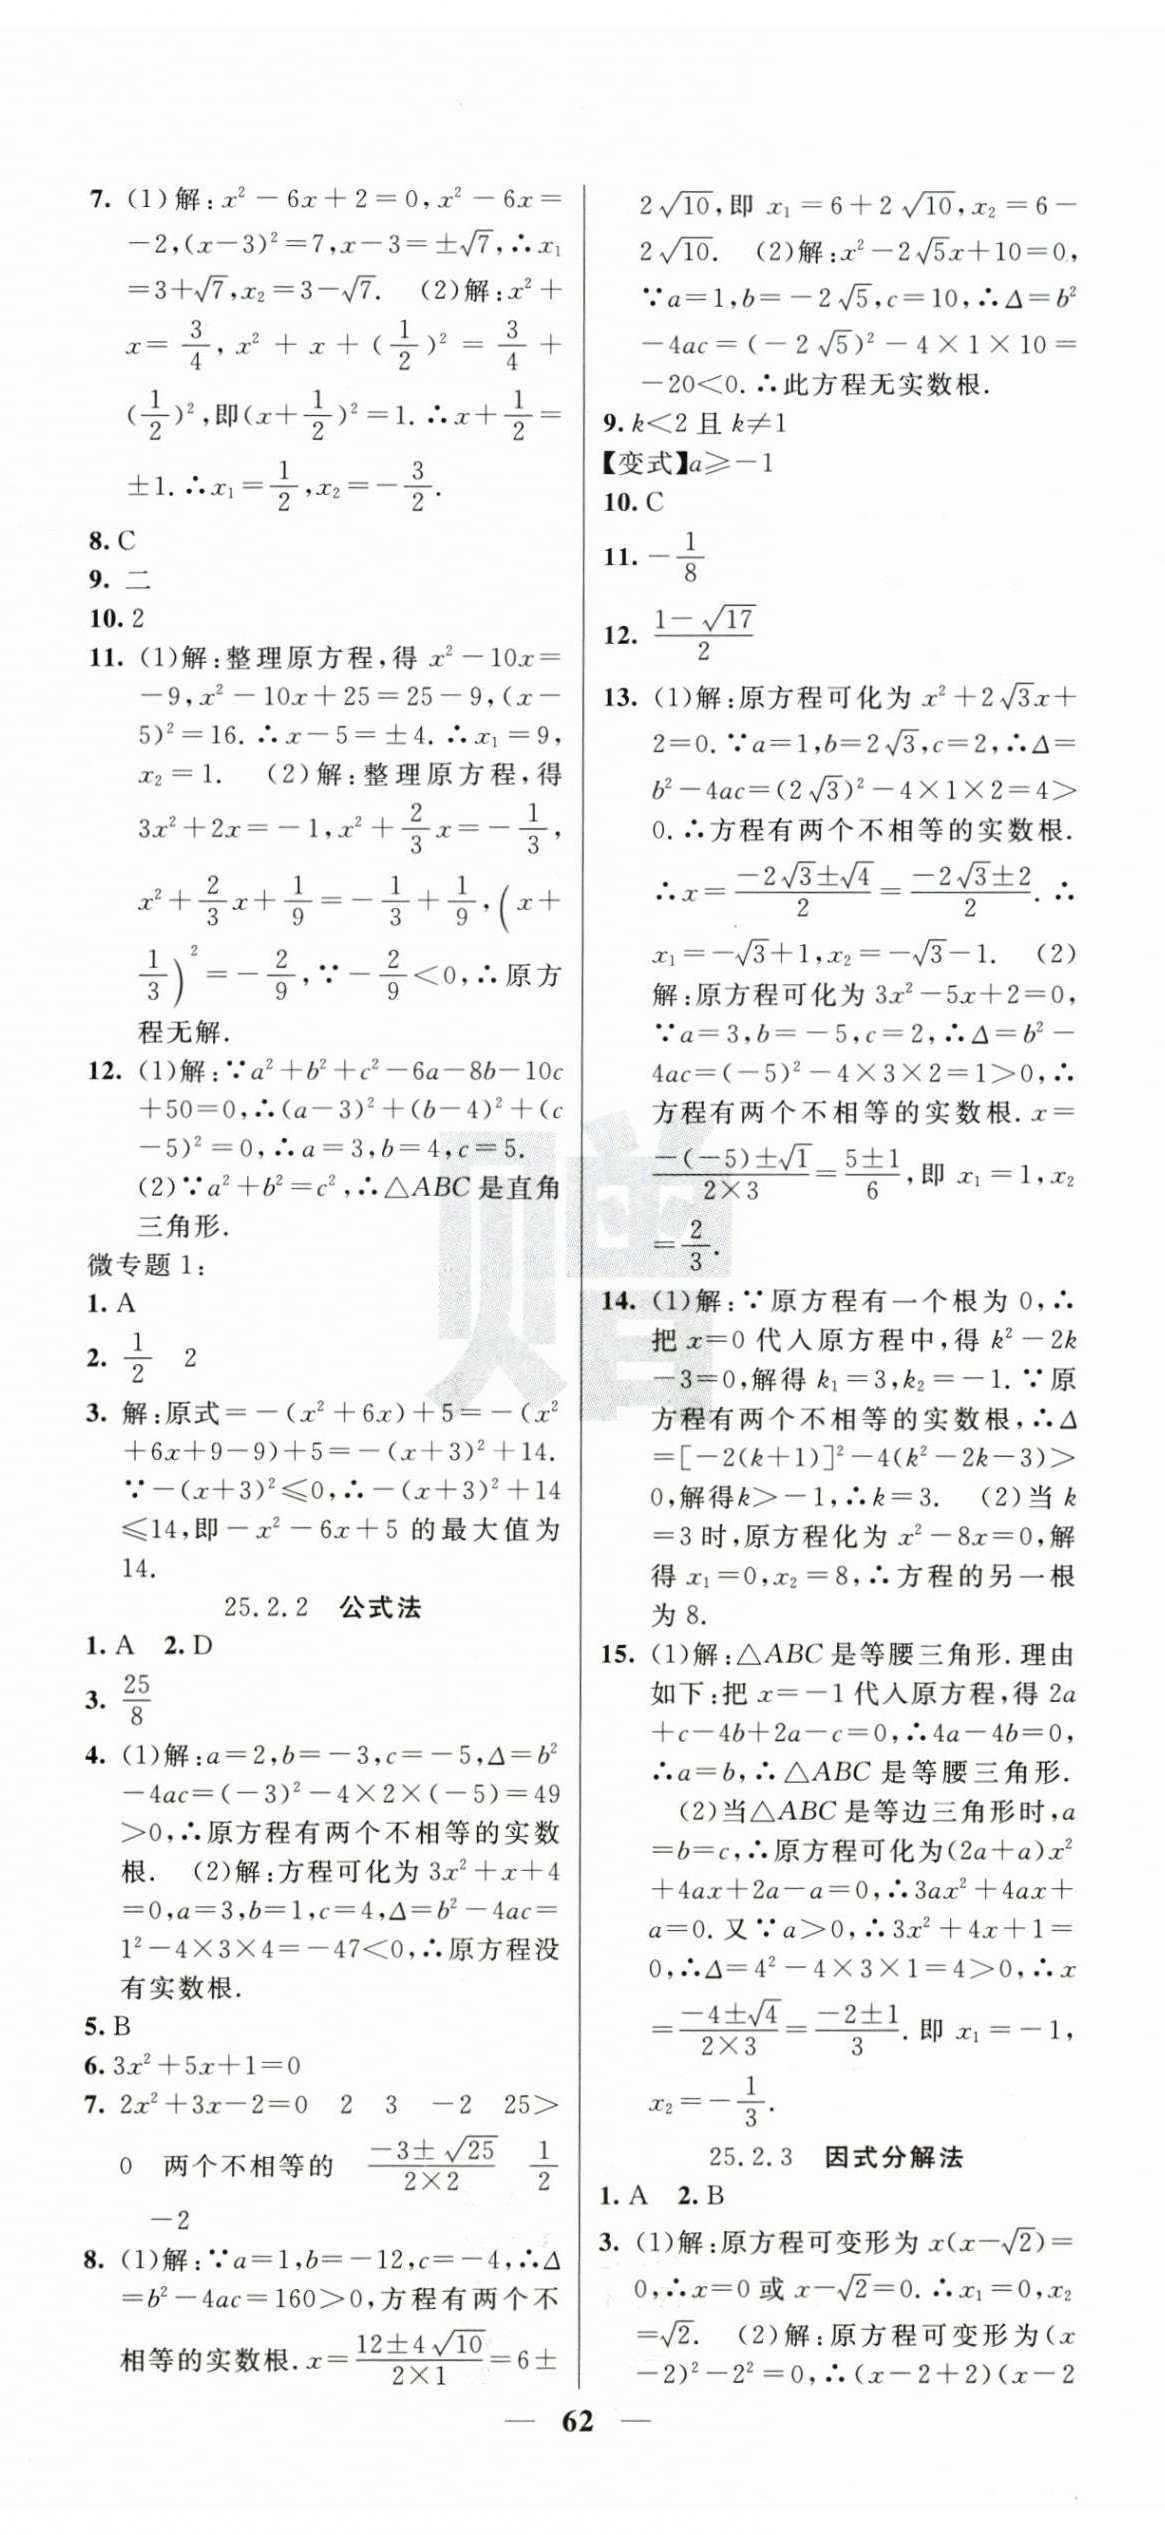 7. (1)解:x²-6x+2=0,x²-6x=
-2,(x-3)²=7,x-3=±√7,∴x₁
=3+√7,x₂=3-√7. (2)解:x²+
x=3/4,x²+x+(1/2)²=3/4+
(1/2)²,即(x+1/2)²=1.∴x+1/2=
±1.∴x₁=1/2,x₂=-3/2.
8. C
9. 二
10. 2
11. (1)解:整理原方程,得 x²-10x=
-9,x²-10x+25=25-9,(x-
5)²=16.∴x-5=±4.∴x₁=9,
x₂=1. (2)解:整理原方程,得
3x²+2x=-1,x²+2/3x=-1/3,
x²+2/3x+1/9=-1/3+1/9,(x+
1/3)²=-2/9,∵-2/9<0,∴原方
程无解.
12. (1)解:∵a²+b²+c²-6a-8b-10c
+50=0,∴(a-3)²+(b-4)²+(c
-5)²=0,∴a=3,b=4,c=5.
(2)∵a²+b²=c²,∴△ABC是直角
三角形.
微专题1:
1. A
2. 1/2 2
3. 解:原式=-(x²+6x)+5=-(x²
+6x+9-9)+5=-(x+3)²+14.
∵-(x+3)²≤0,∴-(x+3)²+14
≤14,即-x²-6x+5的最大值为
14.
25.2.2 公式法
1. A 2. D
3. 25/8
4. (1)解:a=2,b=-3,c=-5,Δ=b²
-4ac=(-3)²-4×2×(-5)=49
>0,∴原方程有两个不相等的实数
根. (2)解:方程可化为3x²+x+4
=0,a=3,b=1,c=4,Δ=b²-4ac=
1²-4×3×4=-47<0,∴原方程没
有实数根.
5. B
6. 3x²+5x+1=0
7. 2x²+3x-2=0 2 3 -2 25>
0 两个不相等的 (-3±√25)/(2×2) 1/2
-2
8. (1)解:∵a=1,b=-12,c=-4,∴Δ
=b²-4ac=160>0,方程有两个不
相等的实数根.x=(12±4√10)/(2×1)=6±
2√10,即 x₁=6+2√10,x₂=6-
2√10. (2)解:x²-2√5x+10=0,
∵a=1,b=-2√5,c=10,∴Δ=b²
-4ac=(-2√5)²-4×1×10=
-20<0.∴此方程无实数根.
9. k<2且k≠1
【变式】a≥-1
10. C
11. -1/8
12. (1-√17)/2
13. (1)解:原方程可化为x²+2√3x+
2=0.∵a=1,b=2√3,c=2,∴Δ=
b²-4ac=(2√3)²-4×1×2=4>
0.∴方程有两个不相等的实数根.
∴x=(-2√3±√4)/2=(-2√3±2)/2.∴
x₁=-√3+1,x₂=-√3-1. (2)
解:原方程可化为3x²-5x+2=0,
∵a=3,b=-5,c=2,∴Δ=b²-
4ac=(-5)²-4×3×2=1>0,∴
方程有两个不相等的实数根.x=
(-(-5)±√1)/(2×3)=(5±1)/6,即 x₁=1,x₂
=2/3.
14. (1)解:∵原方程有一个根为0,∴
把x=0代入原方程中,得k²-2k
-3=0,解得k₁=3,k₂=-1.∵原
方程有两个不相等的实数根,∴Δ
=[-2(k+1)]²-4(k²-2k-3)>
0,解得k>-1,∴k=3. (2)当k
=3时,原方程化为x²-8x=0,解
得x₁=0,x₂=8,∴方程的另一根
为8.
15. (1)解:△ABC是等腰三角形.理由
如下:把x=-1代入原方程,得2a
+c-4b+2a-c=0,∴4a-4b=0,
∴a=b,∴△ABC是等腰三角形.
(2)当△ABC是等边三角形时,a
=b=c,∴原方程可化为(2a+a)x²
+4ax+2a-a=0,∴3ax²+4ax+
a=0.又∵a>0,∴3x²+4x+1=
0,∴Δ=4²-4×3×1=4>0,∴x
=(-4±√4)/(2×3)=(-2±1)/3.即 x₁=-1,
x₂=-1/3.
25.2.3 因式分解法
1. A 2. B
3. (1)解:原方程可变形为x(x-√2)=
0,∴x=0或x-√2=0.∴x₁=0,x₂
=√2. (2)解:原方程可变形为(x
-2)²-2²=0,∴(x-2+2)(x-2
— 62 —
赠